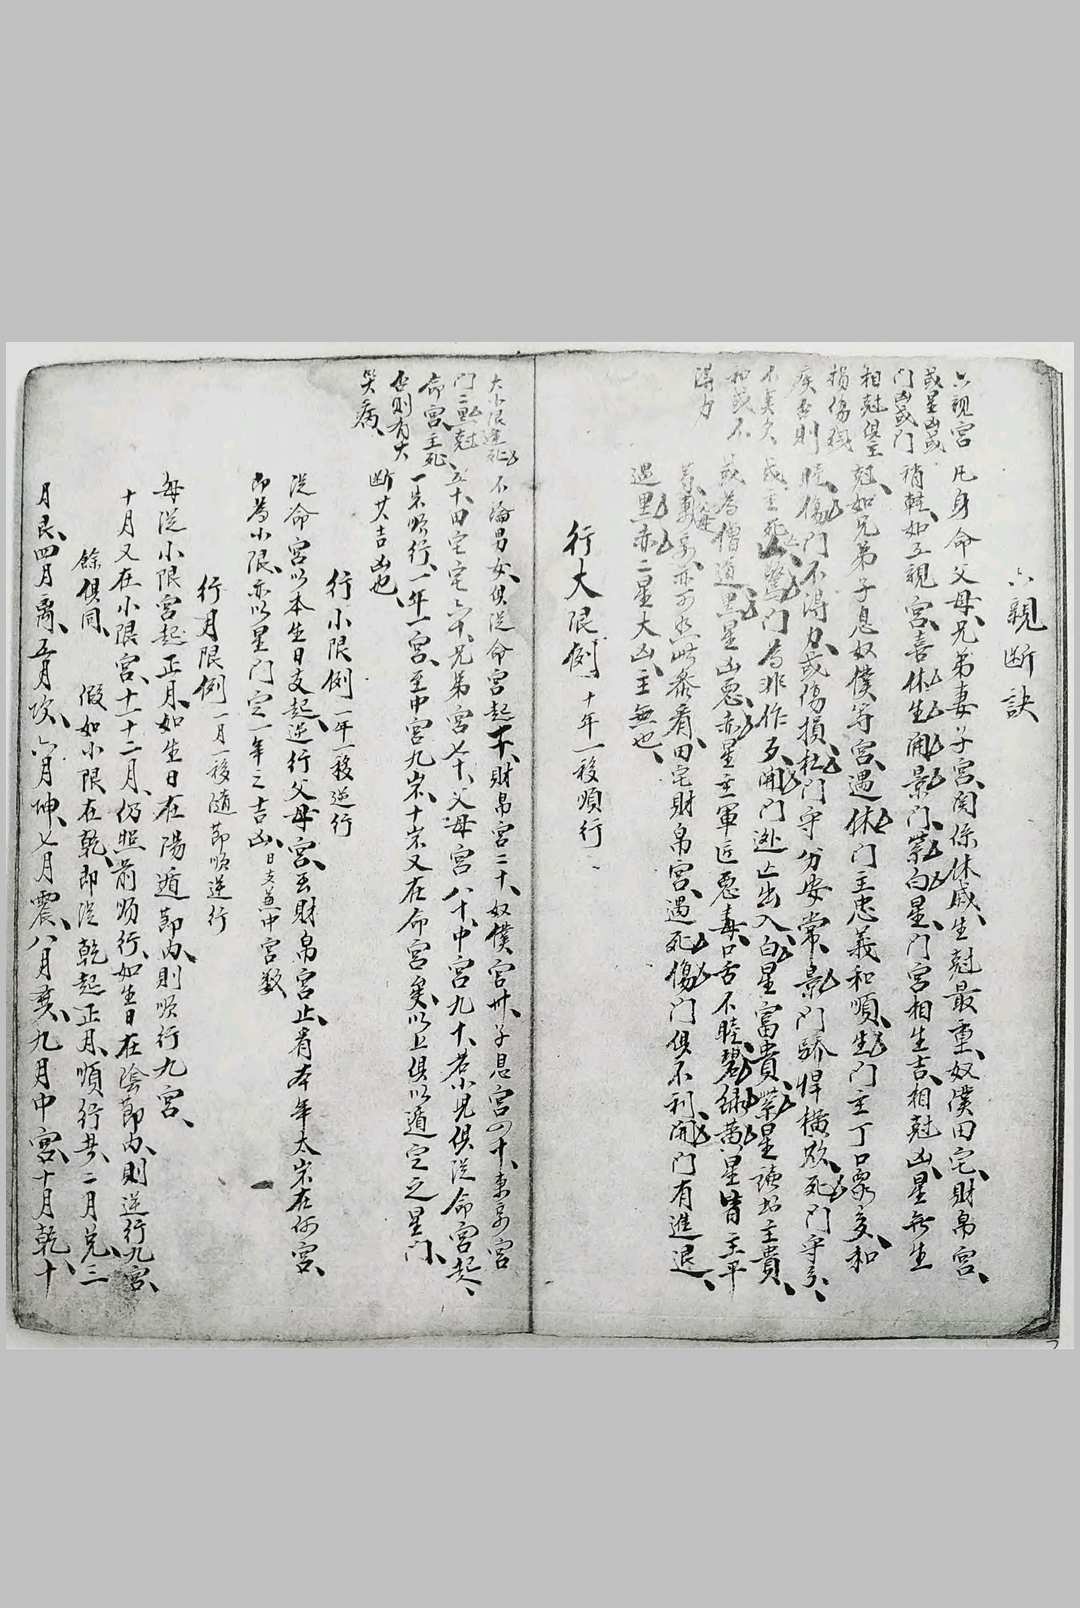 六親断訣
凡身命父母兄弟妻子宮関係休戚生尅最重奴僕田宅財帛宮
稍軽如五親宮喜休生開景門紫白星門宮相生吉相尅凶星無生
尅如兄弟子息奴僕等宮遇休門主忠義和順生門主丁口衆多和
睦傷門不得力或傷損杜門守分安常景門驕悍横敗死門守
或主死亡驚門為非作歹開門逃亡出入白星富貴紫星主貴
或為僧道黒星凶悪赤星主軍匠悪毒口舌不睦碧緑黄星皆主平
等妻父母亦可照此参看田宅財帛宮遇死傷門俱不利開門有進退
遇黒赤二星大凶主無也
六親宮
或星凶或
門凶或門
相尅俱主
損傷残
疾否則
不生又
和或不
得力
行大限例 十年一移順行
不論男女俱従命宮起一十財帛宮二十奴僕宮卅子息宮四十妻妾宮
五十田宅宅六十兄弟宮七十父母宮八十中宮九十若小児俱従命宮起
一歳順行一年一宮至中宮九歳十歳又在命宮矣以上俱以遁定之星門
断其吉凶也
大小限逢死
門二黒尅
命宮主死
否則有大
災病
行小限例 一年一移逆行
従命宮以本生日支起逆行父母宮至財帛宮止看本年太歳在何宮
即為小限亦以星門定一年之吉凶 日支無中宮数
行月限例 一月一移随節順逆行
每従小限宮起正月如生日在陽遁節内則順行九宮
十月又在小限宮十一十二月仍照前順行如生日在陰節内則逆行九宮
餘俱同 假如小限在乾即従乾起正月順行其二月兌三
月艮四月離五月坎六月坤七月震八月巽九月中宮十月乾十